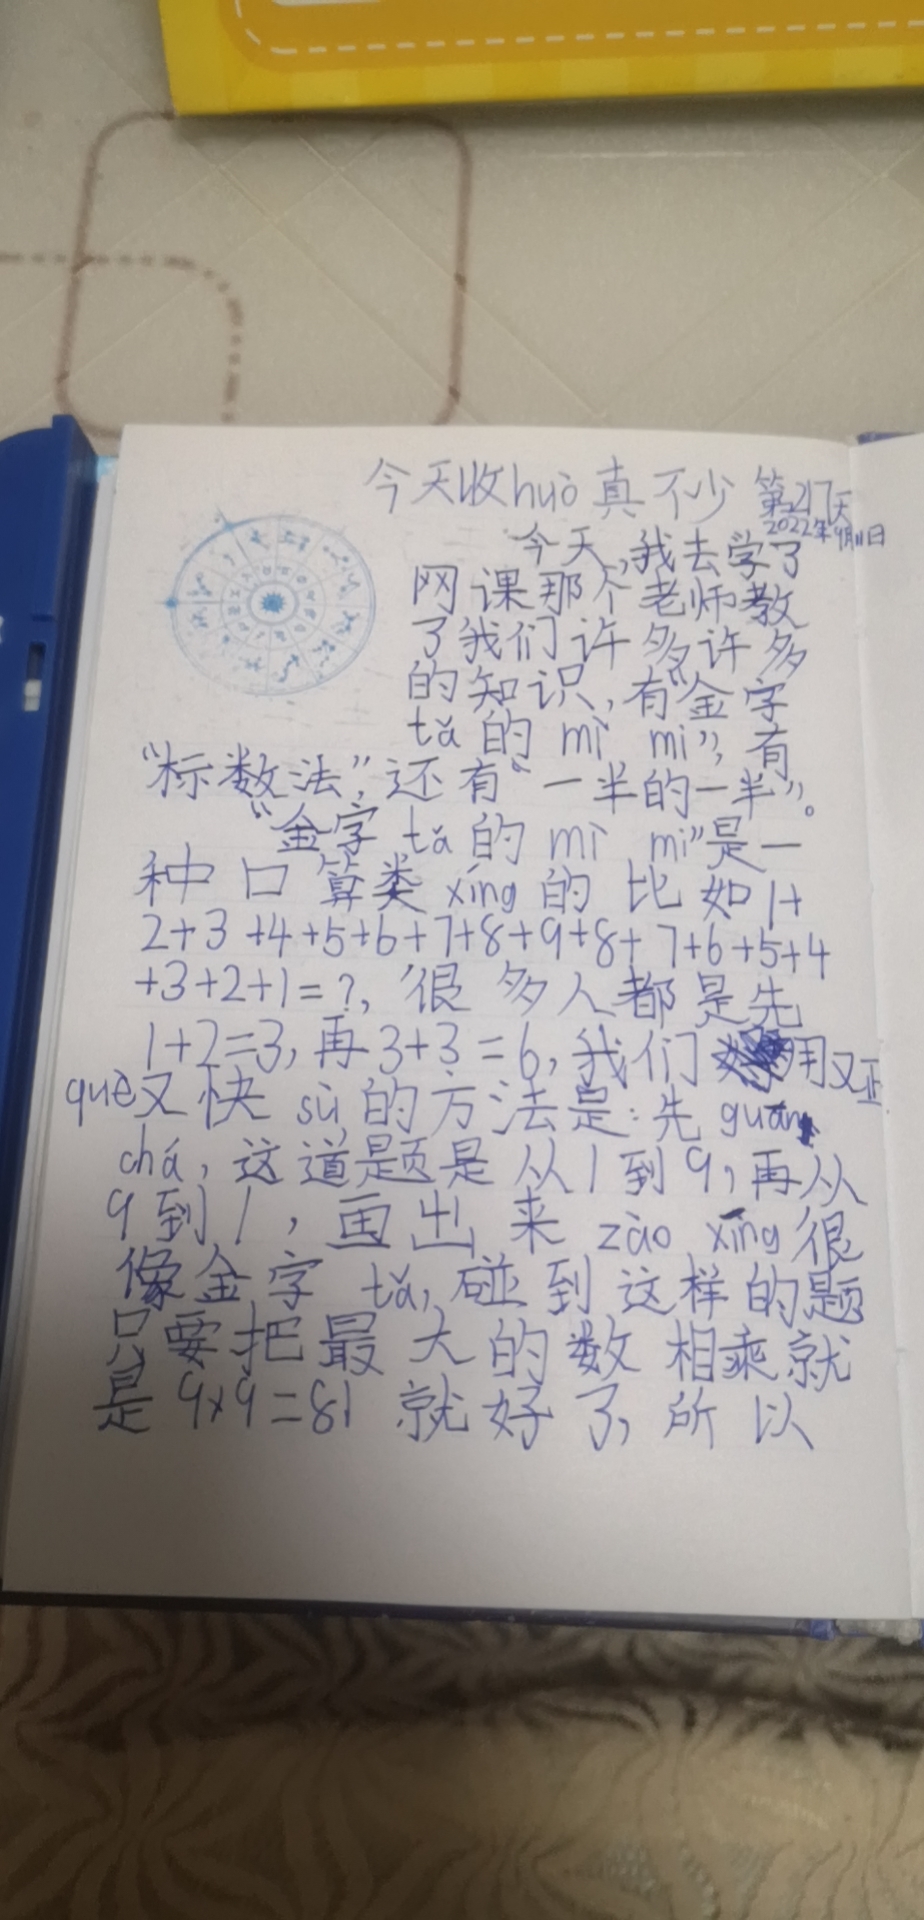 今天收huò真不少 第217天
2022年9月11日
今天,我去学了
网课那个老师教
了我们许多许多
的知识,有“金字
tǎ的mì mì”,有
“标数法”,还有“一半的一半”。
“金字tǎ的mì mì”是一
种口算类xíng的比如1+
2+3+4+5+6+7+8+9+8+7+6+5+4
+3+2+1=?,很多人都是先
1+2=3,再3+3=6,我们用又正
què又快sù的方法是:先guān
chá,这道题是从1到9,再从
9到1,画出来zào xíng很
像金字tǎ,碰到这样的题
只要把最大的数相乘就
是9×9=81就好了,所以